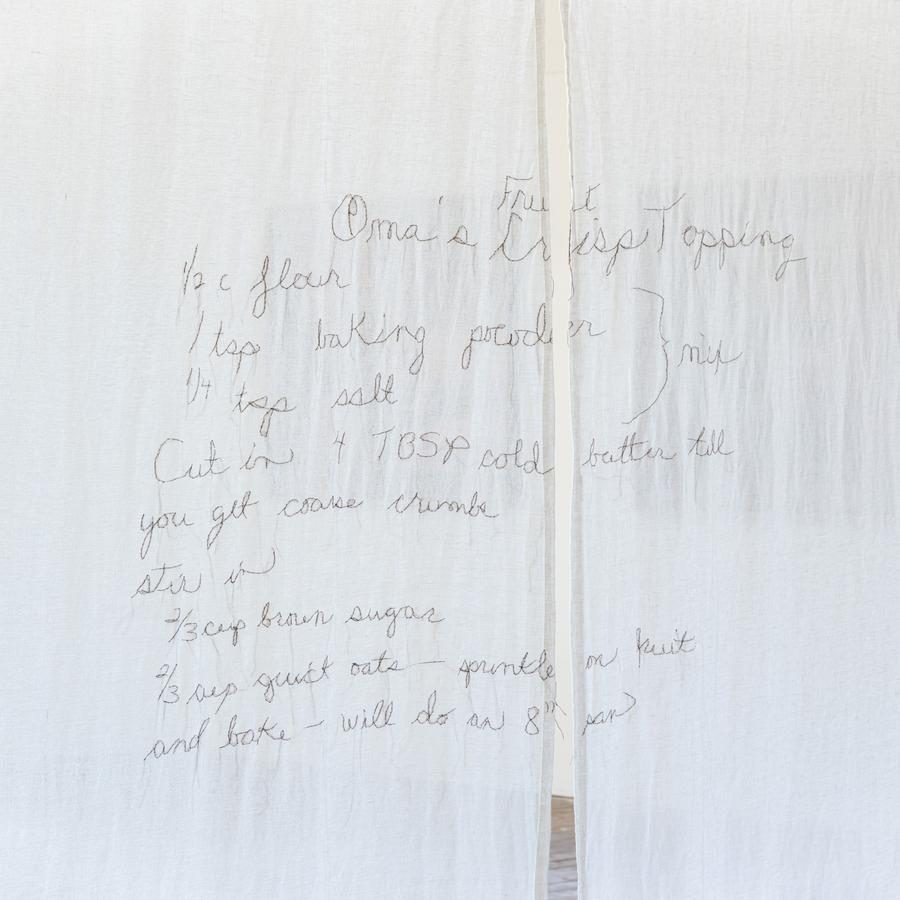 Fruit
Oma's Crisp Topping
1/2 c flour
1 tsp baking powder
1/4 tsp salt
} mix
Cut in 4 TBSP cold butter till
you get coarse crumbs
stir in
2/3 cup brown sugar
2/3 cup quick oats — sprinkle on fruit
and bake — will do an 8" pan